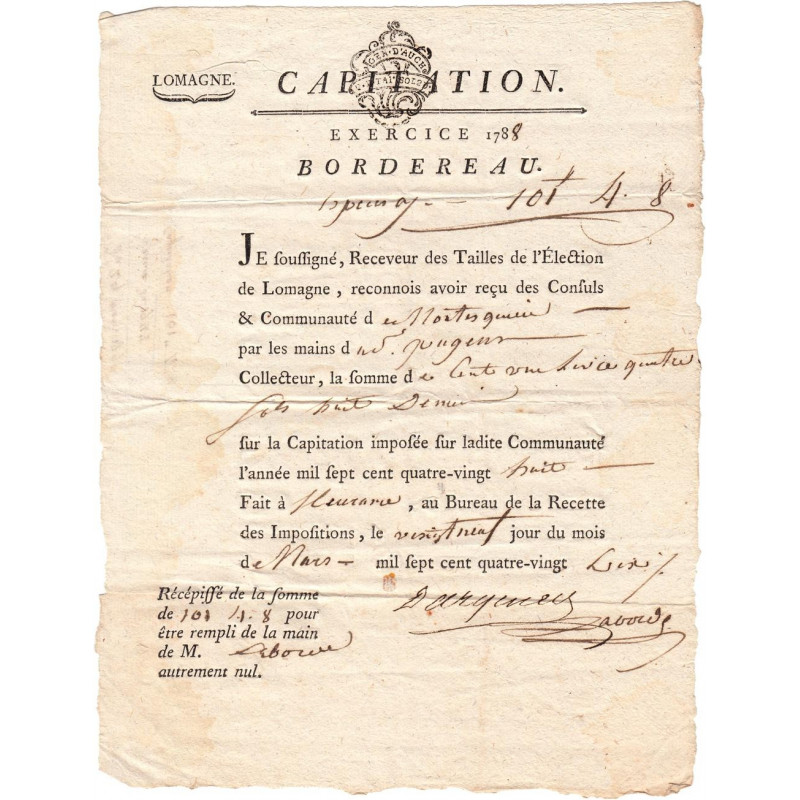 GEN. D'AUCH
LOMAGNE. CAPITATION.
EXERCICE 1788
BORDEREAU.
101 4. 8
JE soussigné, Receveur des Tailles de l'Élection
de Lomagne, reconnois avoir reçu des Consuls
& Communauté d
par les mains d
Collecteur, la somme de Cent une Livre quatre
sols huit Denier
sur la Capitation imposée sur ladite Communauté
l'année mil sept cent quatre-vingt huit
Fait à fleurance, au Bureau de la Recette
des Impositions, le vingt neuf jour du mois
de Mars mil sept cent quatre-vingt
Récépissé de la somme
de 101 4. 8 pour
être rempli de la main
de M. Laborde
autrement nul.
Laborde